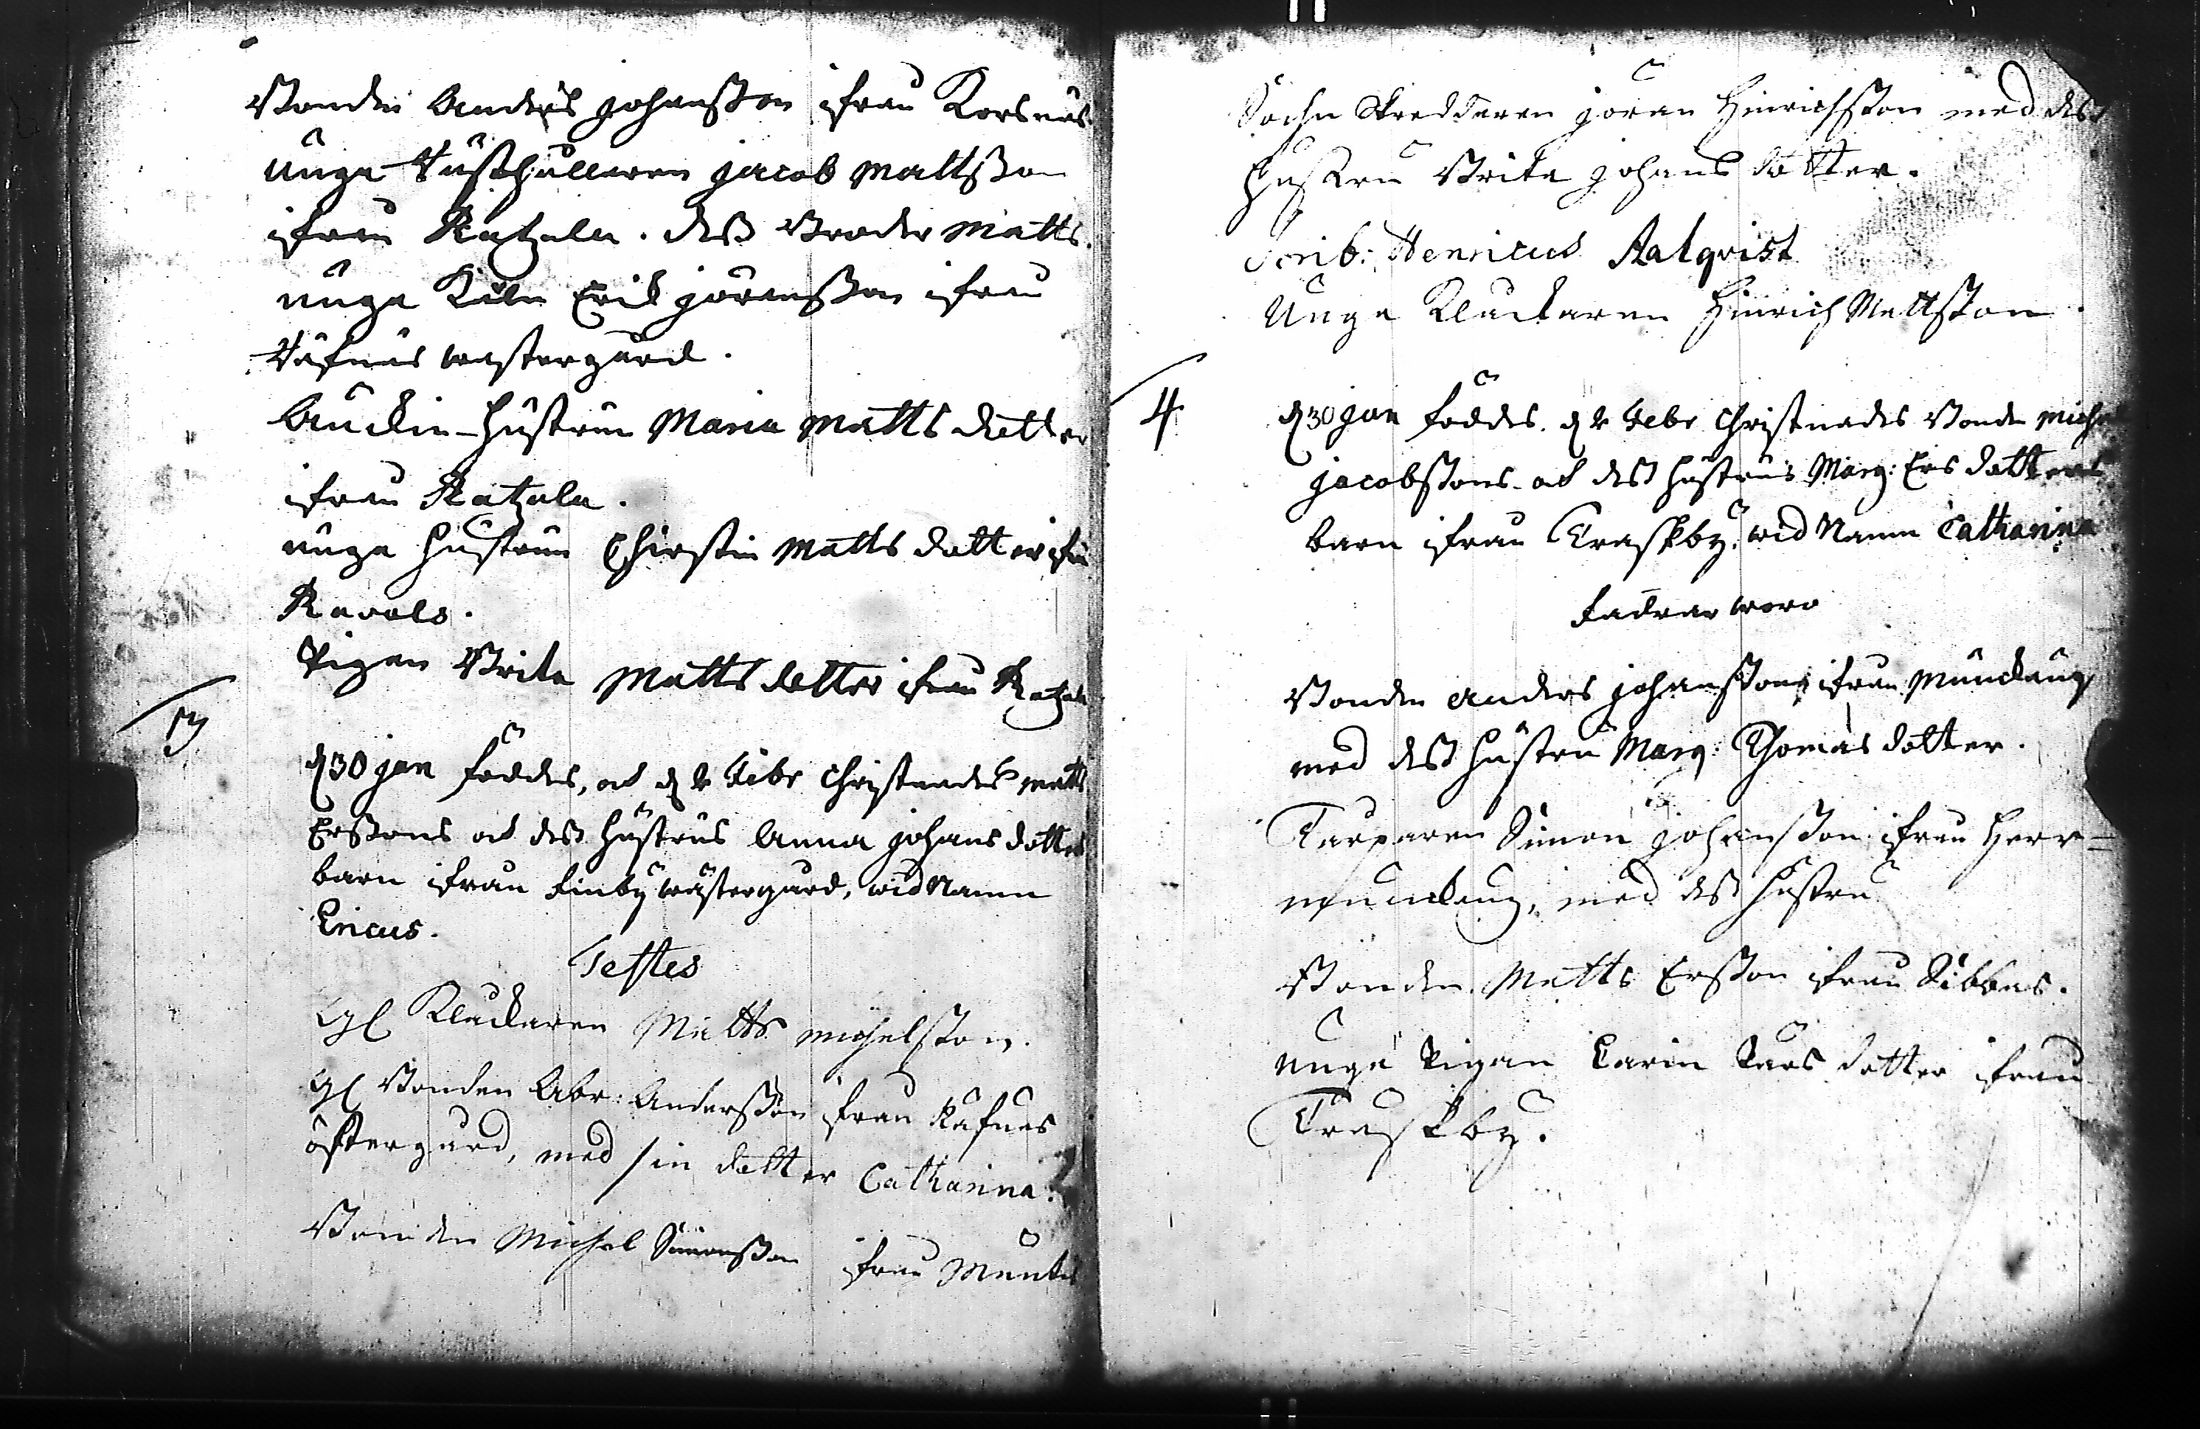 Bonden Anders Johansson ifrån Korsnäs.
unga Husthållaren Jacob Mattsson
ifrån Ratzala. dess Broder Matts.
unga Karln Erick Jöransson ifrån
Häfnäs wästergård.
Encki-hustrun Maria Matts dotter
ifrån Ratzala.
unga Hustrun Chirstin Matts dotter ifrå
Ravals.
Pigan Brita Matts dotter ifrån Ratzala
3
d 30 Jan föddes, och d 2 Febr Christnades Matts
Erssons och dess hustrus Anna Johans dotters
barn ifrån Finby wästergård, wid Namn
Ericus.
Testes
Gl Klåckaren Matts Michelsson.
Gl Bonden Abr: Andersson ifrån Räfnäs
östergård, med sin dotter Catharina.
Bonden Michel Simonsson ifrån
Sochn Skreddaren Jöran Hinrichsson med dess
Hustru Brita Johans dotter.
Scrib: Henricus Aalqvist
Unga Klåckaren Hinrich Mattsson
4
d 30 Jan föddes, d 2 Febr Christnades Bonden Michel
Jacobssons och dess hustrus Marg: Ers dotters
barn ifrån Träskby, wid Namn Catharina
Fadrar woro
Bonden Anders Johansson ifrån
med dess hustru Marg: Thomas dotter.
Torparen Simon Johansson ifrån Herr=
med dess hustru
Bonden Matts Ersson ifrån Sibbas.
unga Pigan Carin Lars dotter ifrån
Träskby.